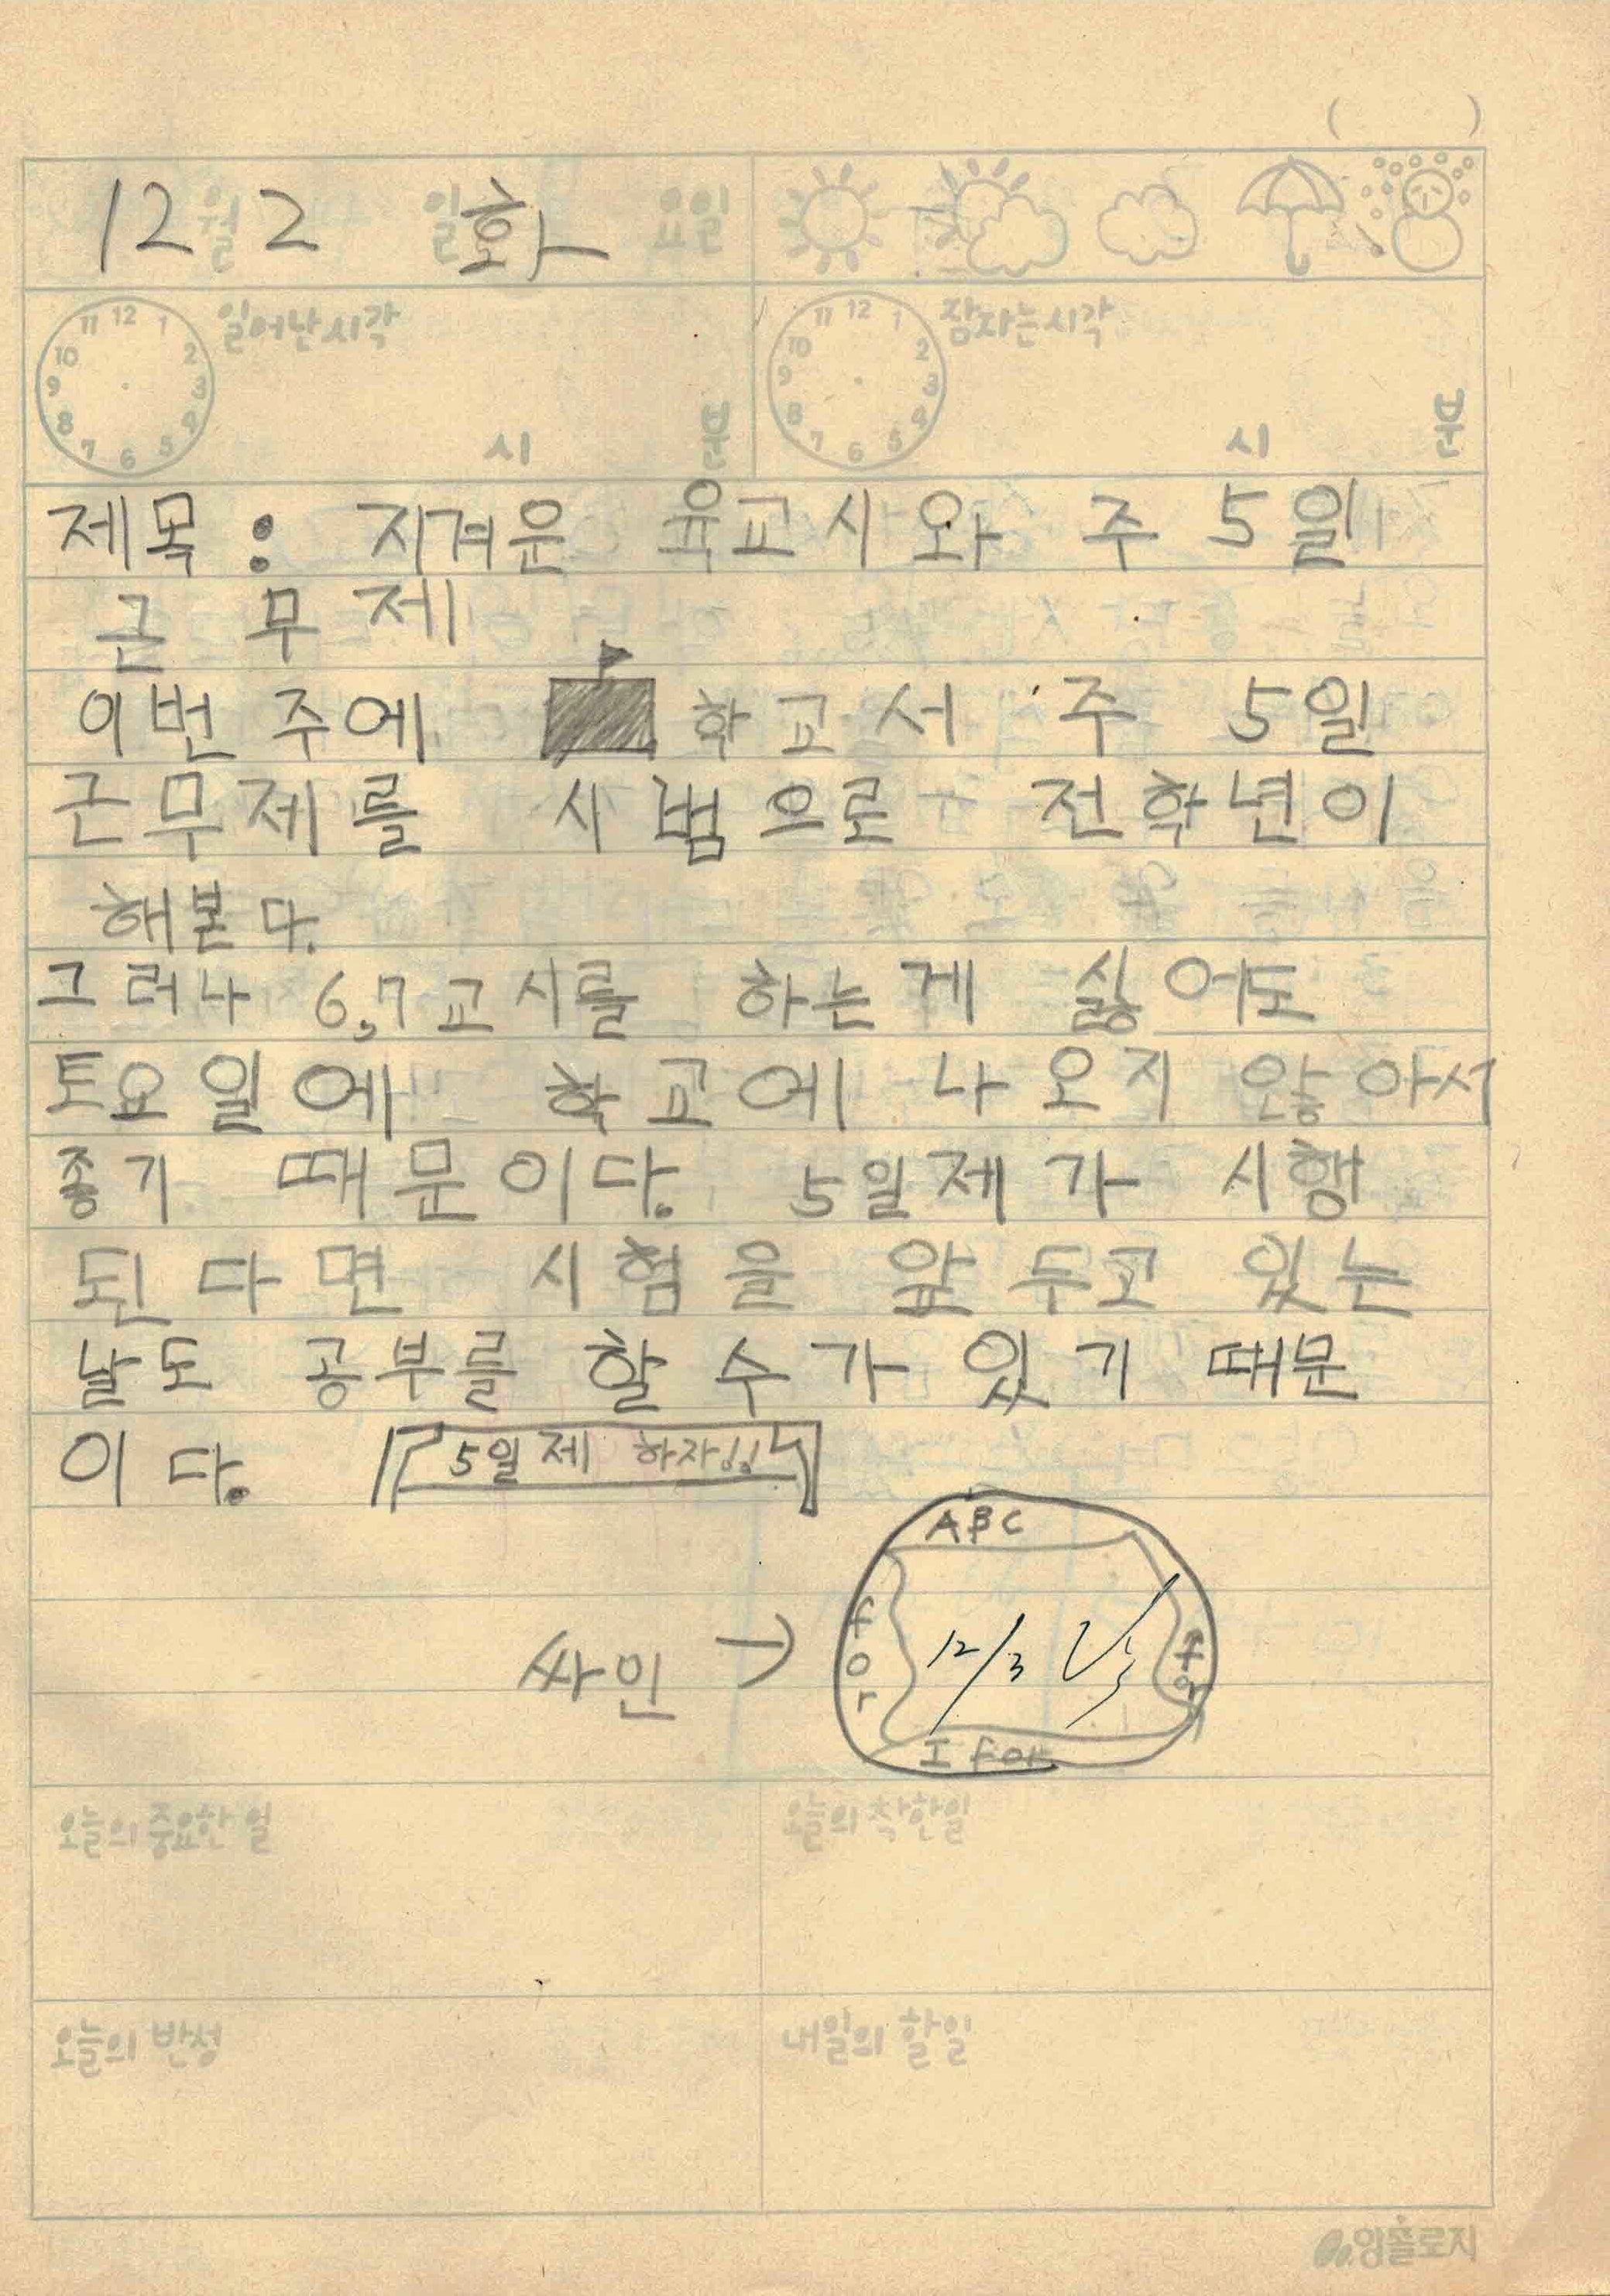 ( )
12월 2일 화요일
일어난시각 시 분
잠자는시각 시 분
11 12 1
10 2
9 3
8 4
7 6 5
11 12 1
10 2
9 3
8 4
7 6 5
제목 : 지겨운 육교시와 주 5일
근무제
이번 주에 학교서 주 5일
근무제를 시범으로 전학년이
해본다.
그러나 6,7교시를 하는게 싫어도
토요일에 학교에 나오지 않아서
좋기 때문이다. 5일제가 시행
된다면 시험을 앞두고 있는
날도 공부를 할 수가 있기 때문
이다. 5일제 하자!!
ABC
for
12/3
for
싸인 →
I for
오늘의 중요한 일
오늘의 착한일
오늘의 반성
내일의 할일
양폴로지